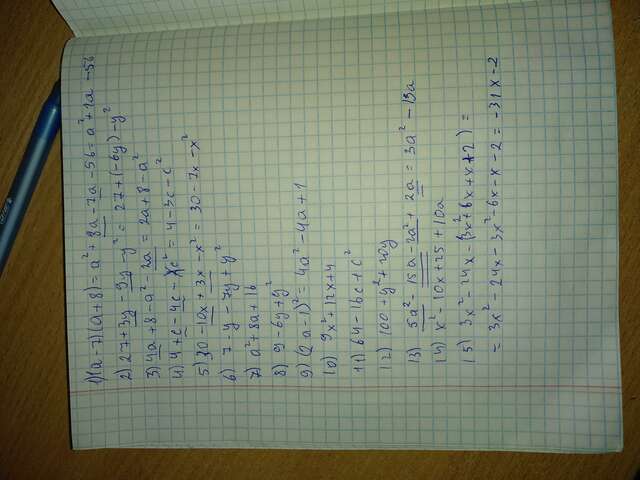 1) (a-7)(a+8) = a² + 8a - 7a - 56 = a² + 1a - 56
2) 27 + 3y - 9y - y² = 27 + (-6y) - y²
3) 4a + 8 - a² - 2a = 2a + 8 - a²
4) 4 + c - 4c - c² = 4 - 3c - c²
5) 30 - 10x + 3x - x² = 30 - 7x - x²
6) 7 - y - 7y + y²
7) a² + 8a + 16
8) 9 - 6y + y²
9) (2a - 1)² = 4a² - 4a + 1
10) 9x² + 12x + 4
11) 64 - 16c + c²
12) 100 + y² + 20y
13) 5a² - 15a - 2a² + 2a = 3a² - 13a
14) x² - 10x + 25 + 10a
15) 3x² - 24x - (3x² + 6x + x + 2) =
= 3x² - 24x - 3x² - 6x - x - 2 = -31x - 2